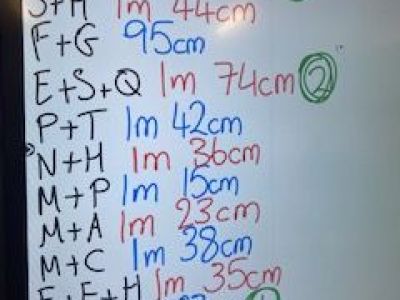 1m 44cm
F+G 95cm
E+S+Q 1m 74cm 2
P+T 1m 42cm
N+H 1m 36cm
M+P 1m 15cm
M+A 1m 23cm
M+C 1m 38cm
1m 35cm